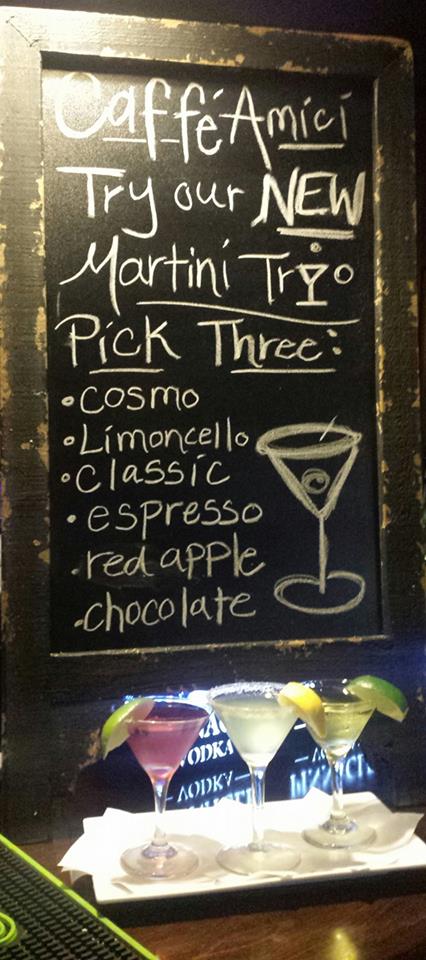 Caffé Amici
Try our NEW
Martini Trio
Pick Three:
• cosmo
• Limoncello
• classic
• espresso
• red apple
• chocolate
VODKA
VODKA